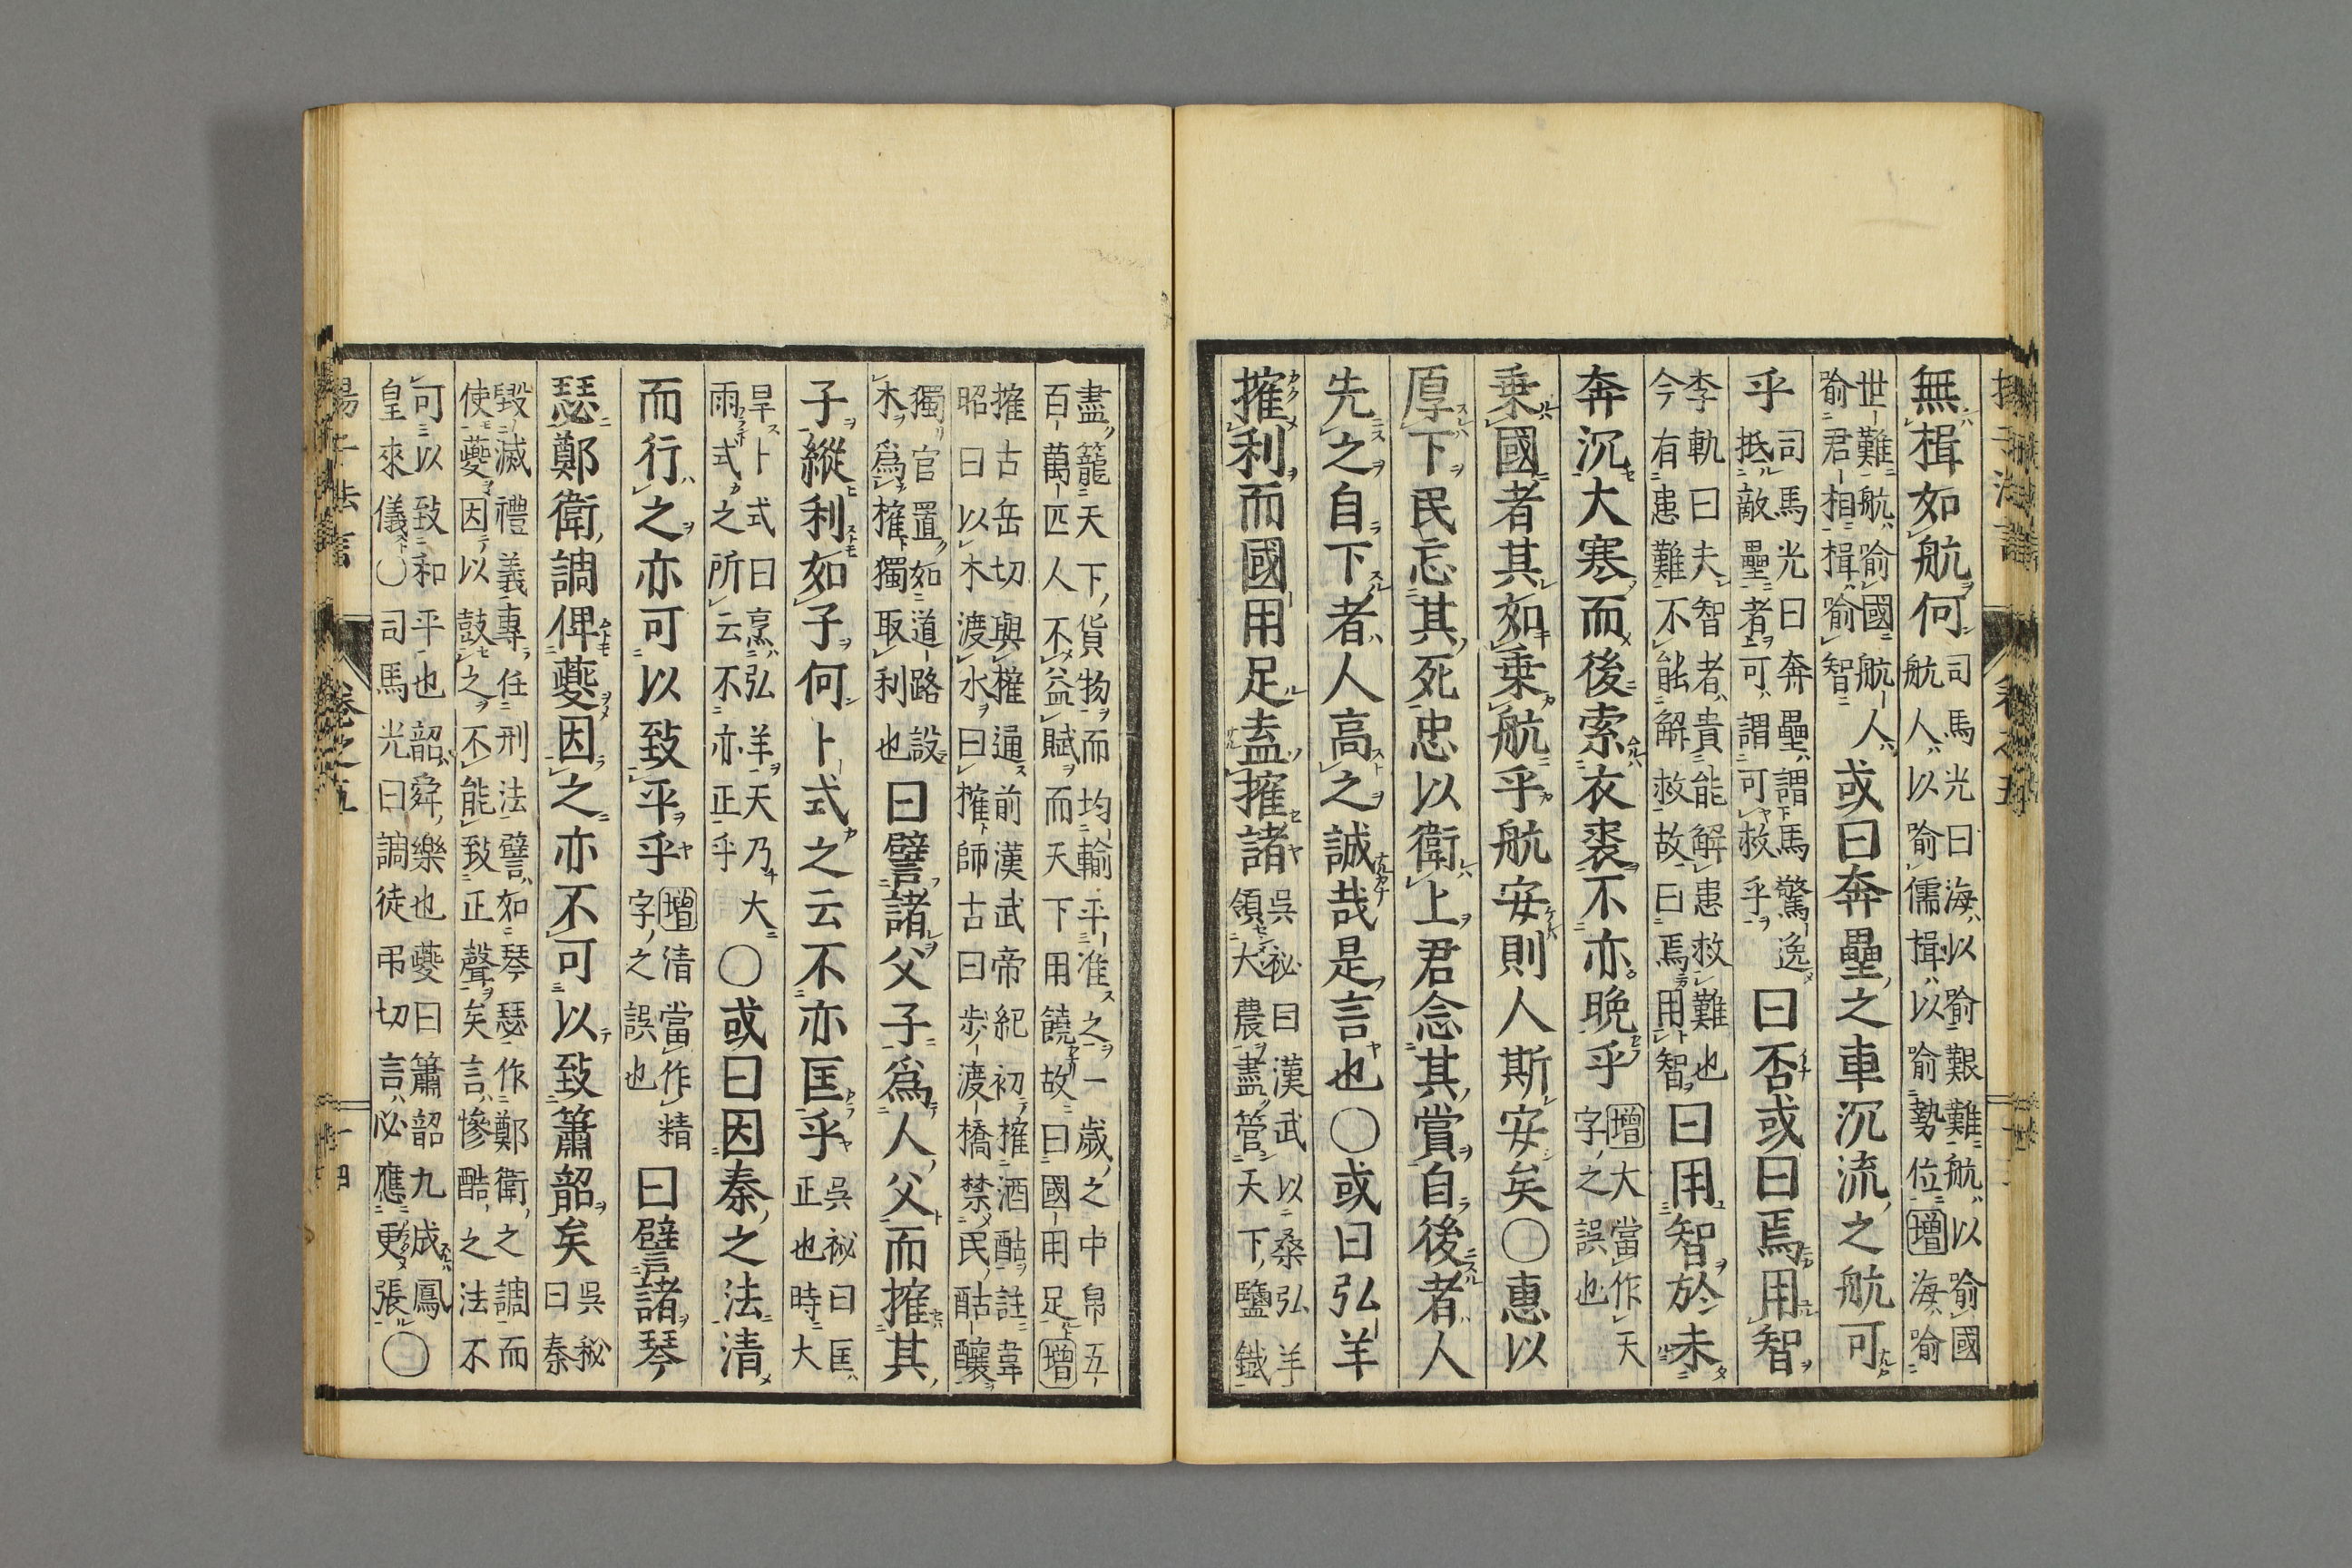 揚子法言
卷之五
無楫如航何
司馬光曰海以喻艱難航以喻國
航人以喻儒楫以喻勢位增海喻
世難航喻國航人
喻君相楫喻智
或曰奔壘之車沉流之航可
乎
司馬光曰奔壘謂馬驚逸
抵敵壘者可謂可救乎
曰否或曰焉用智
李軌曰夫智者貴能解患救難也
今有患難不能解救故曰焉用智
曰用智於未
奔沉大寒而後索衣裘不亦晚乎
增大當作天
字之誤也
乗國者其如乗航乎航安則人斯安矣○惠以
厚下民忘其死忠以衛上君念其賞自後者人
先之自下者人高之誠哉是言也○或曰弘羊
搉利而國用足盍搉諸
吳祕曰漢武以桑弘羊
領大農盡管天下鹽鐵
盡籠天下貨物而均輸平准之一歲之中帛五
百萬匹人不益賦而天下用饒故曰國用足增
搉古岳切與榷通前漢武帝紀初搉酒酤註韋
昭曰以木渡水曰搉師古曰步渡橋禁民酤釀
獨官置如道路設
木爲搉獨取利也
曰譬諸父子爲人父而搉其
子縱利如子何卜式之云不亦匡乎
吳祕曰匡
正也時大
旱卜式曰烹弘羊天乃大
雨式之所云不亦正乎
○或曰因秦之法清
而行之亦可以致平乎
增清當作精
字之誤也
曰譬諸琴
瑟鄭衛調俾夔因之亦不可以致簫韶矣
吳祕
曰秦
毀滅禮義專任刑法譬如琴瑟作鄭衛之調而
使夔因以鼓之不能致正聲矣言慘酷之法不
可以致和平也韶舜樂也夔曰簫韶九成鳳
皇來儀○司馬光曰調徒弔切言必應更張○
揚子法言
卷之五
十四